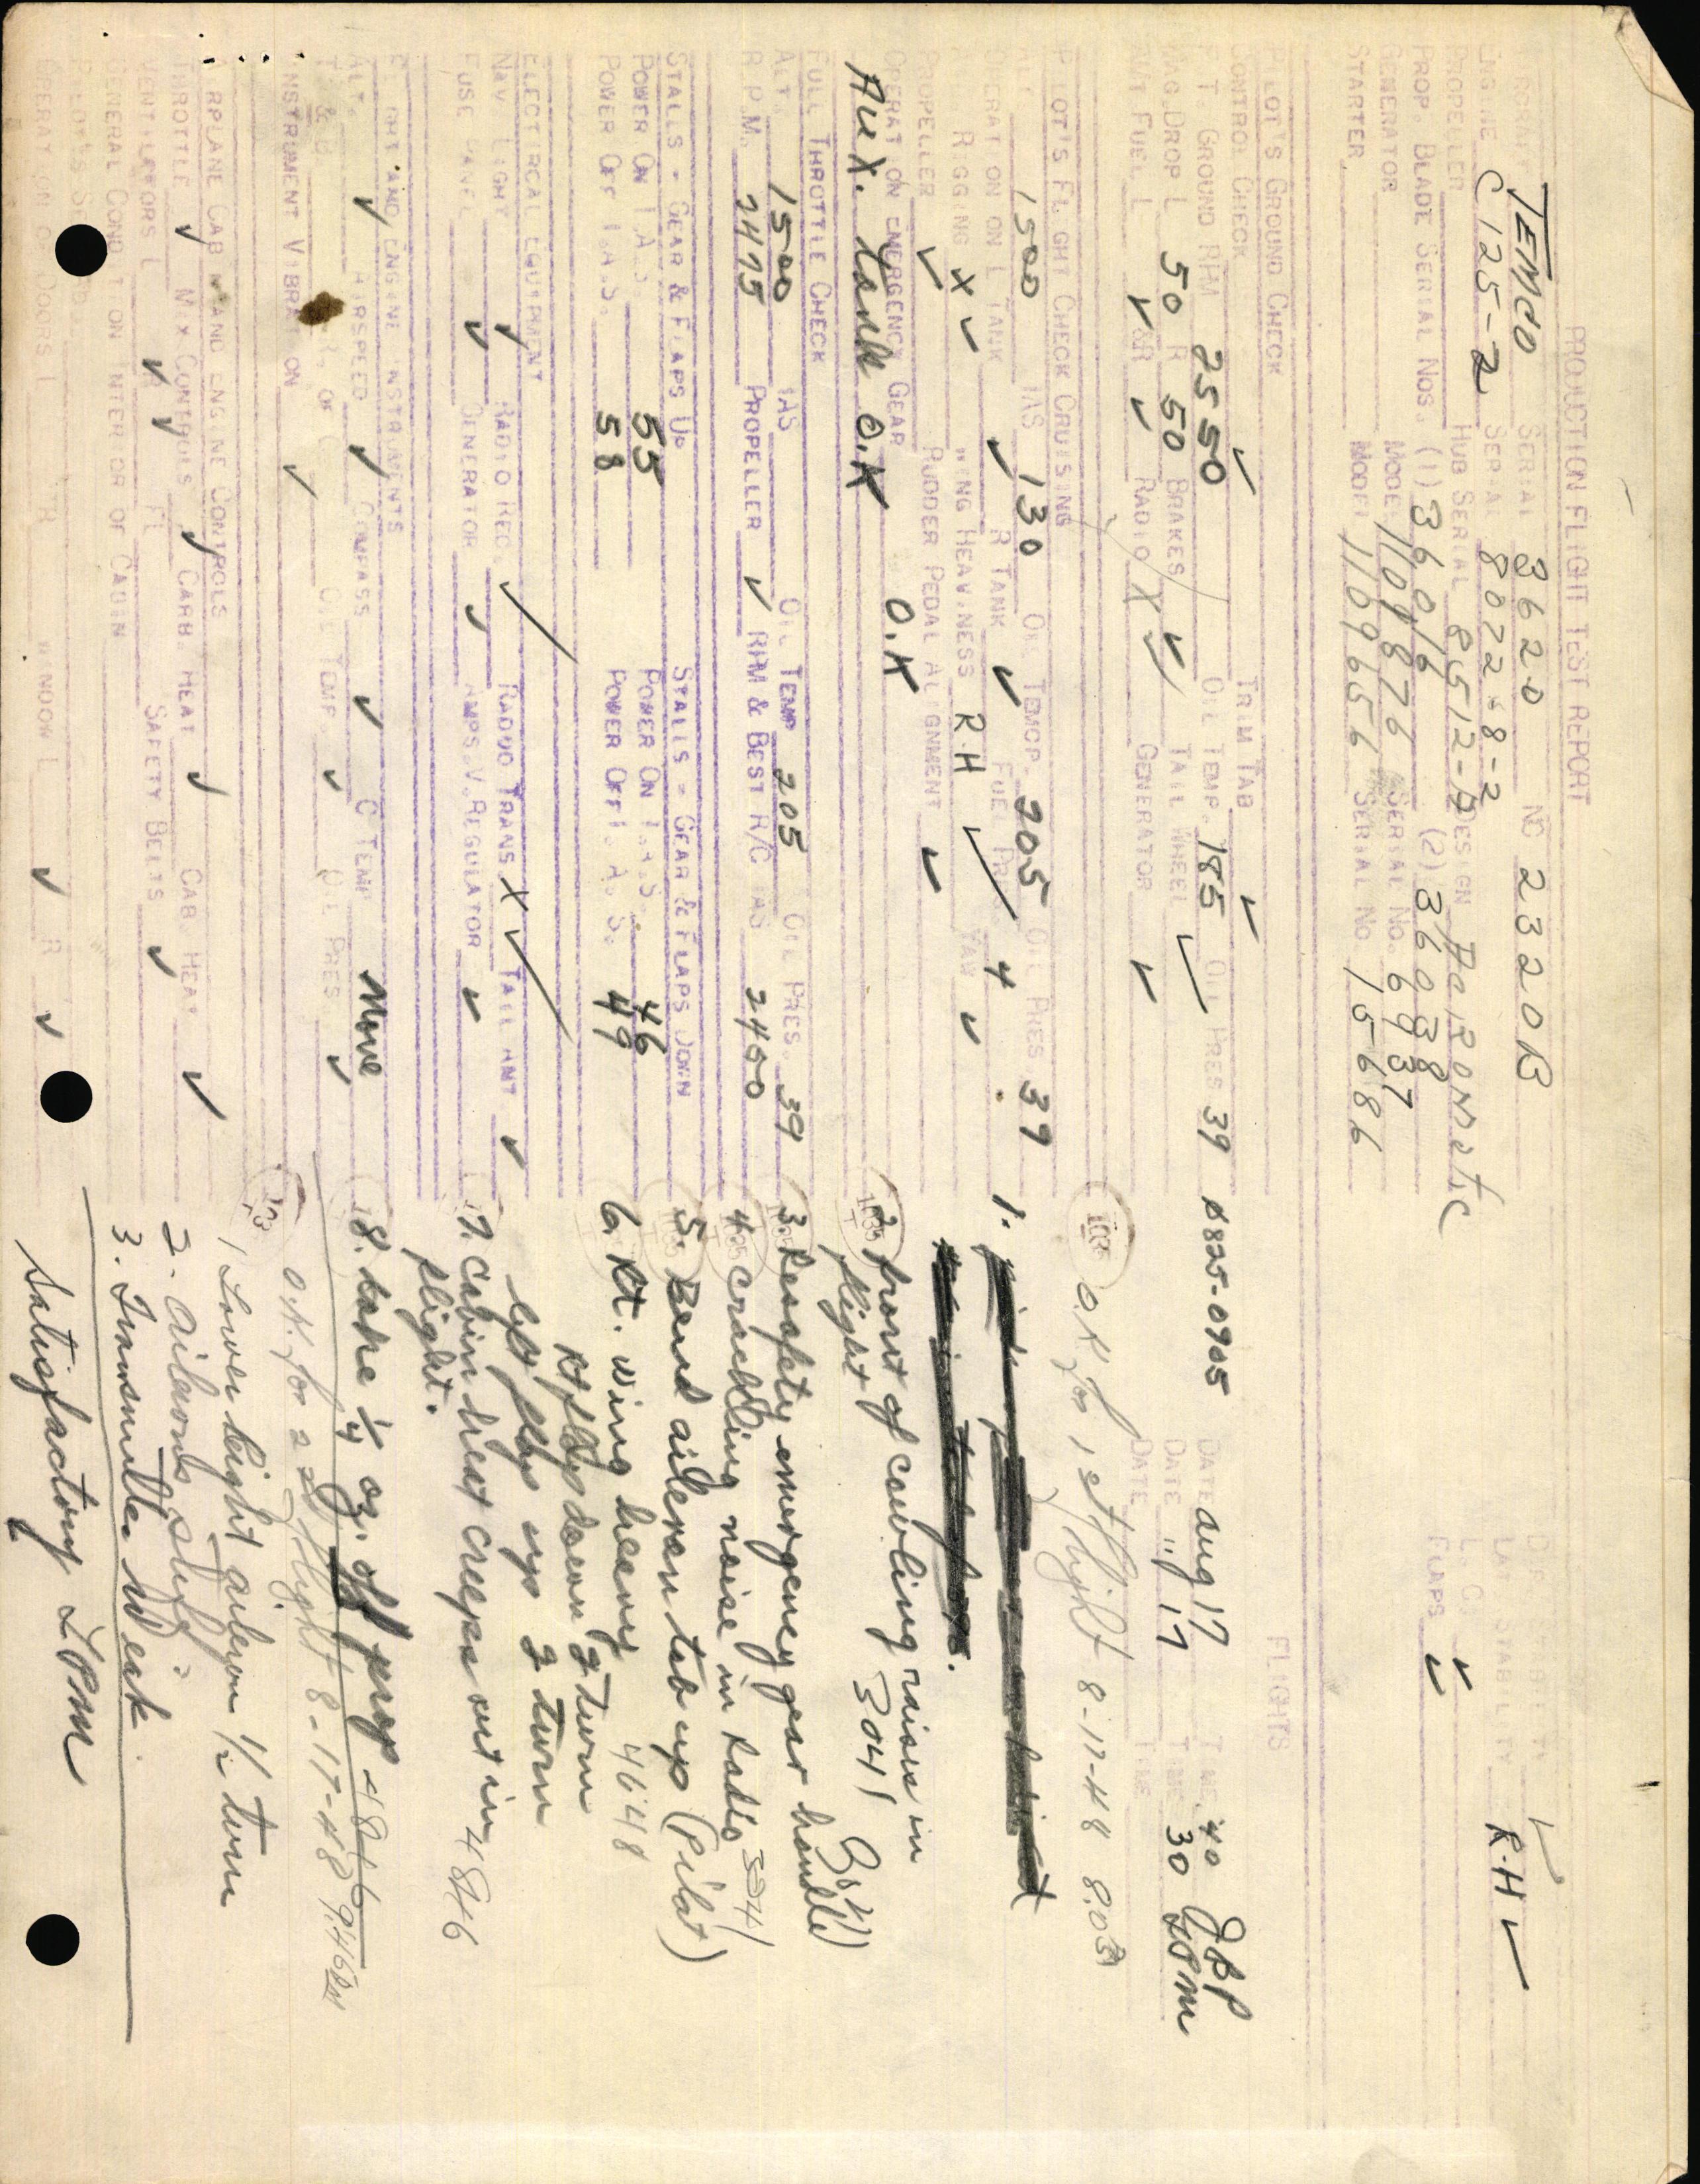 PRODUCTION FLIGHT TEST REPORT
AIRCRAFT TEMCO SERIAL 3620 NC 2320B
ENGINE C125-2 SERIAL 8022-8-2
PROPELLER HUB SERIAL 8512-A DESIGN Aeromatic
PROP. BLADE SERIAL NOS. (1) 36016 (2) 36038
GENERATOR MODEL 1101876 SERIAL NO. 6937
STARTER MODEL 1109656 SERIAL NO. 15686
LAT STABILITY R.H ✓
L. G. ✓
FLAPS ✓
PILOT'S GROUND CHECK
FLIGHTS
CONTROL CHECK ✓ TRIM TAB ✓
P. T. GROUND RPM 2550 OIL TEMP. 185 OIL PRES 39 #825-0905 DATE Aug 17 TIME 40 JBP
MAG DROP L 50 R 50 BRAKES ✓ TAIL WHEEL ✓ DATE " 17 TIME 30 LPM
FUEL L ✓ &R ✓ RADIO X ✓ GENERATOR ✓ DATE TIME
O.K. for 1st flight 8-17-48 8:03
PILOT'S FLIGHT CHECK CRUISING
ALT. 1500 IAS 130 OIL TEMP. 205 OIL PRES 39
OPERATION ON L TANK ✓ R TANK ✓ FUEL PR. 4 1.
RIGGING X ✓ WING HEAVINESS RH ✓ YAW ✓
PROPELLER ✓ RUDDER PEDAL ALIGNMENT ✓
OPERATION EMERGENCY GEAR O.K 2. front of cowling raises in
AUX. tank O.K flight 3041
FULL THROTTLE CHECK
ALT. 1500 IAS OIL TEMP 205 OIL PRES. 39 3. Resafety emergency gear handle
R.P.M. 2475 PROPELLER ✓ RPM & BEST R/C IAS 2400 4. crackling noise in Radio 3041
STALLS - GEAR & FLAPS UP STALLS - GEAR & FLAPS DOWN 5. Bend aileron tab up (Pilot)
POWER ON I.A.S. 55 POWER ON I.A.S. 46
POWER OFF I.A.S. 58 POWER OFF I.A.S. 49 6. Rt. wing heavy 4648
Rt flap down 2 turn
left flap up 2 turn
ELECTIRCAL EQUIPMENT
NAV. LIGHT ✓ RADIO REC. ✓ RADIO TRANS X ✓ TAIL ANT ✓
FUSE PANEL ✓ GENERATOR ✓ AMPS.V.REGULATOR ✓ 7. Cabin heat creeps out in 4846
flight.
FLIGHT AND ENGINE INSTRUMENTS
ALT. ✓ AIRSPEED ✓ COMPASS ✓ C TEMP None 8. take 1/4 oz. off prop 4846
OIL TEMP. ✓ OIL PRES ✓ O.K. for 2nd flight 8-17-48 9:46
INSTRUMENT VIBRATION ✓
AIRPLANE CABIN AND ENGINE CONTROLS 1 Lower right aileron 1/2 turn
THROTTLE ✓ MIX CONTROLS ✓ CARB. HEAT ✓ CAB. HEAT ✓ 2. ailerons stiff.
VENTILATORS L ✓ R ✓ FL SAFETY BELTS ✓
GENERAL CONDITION INTERIOR OF CABIN 3. Transmitter Weak.
PILOT'S SEAT
OPERATION OF DOORS L R WINDOW L ✓ R ✓ Satisfactory LPM